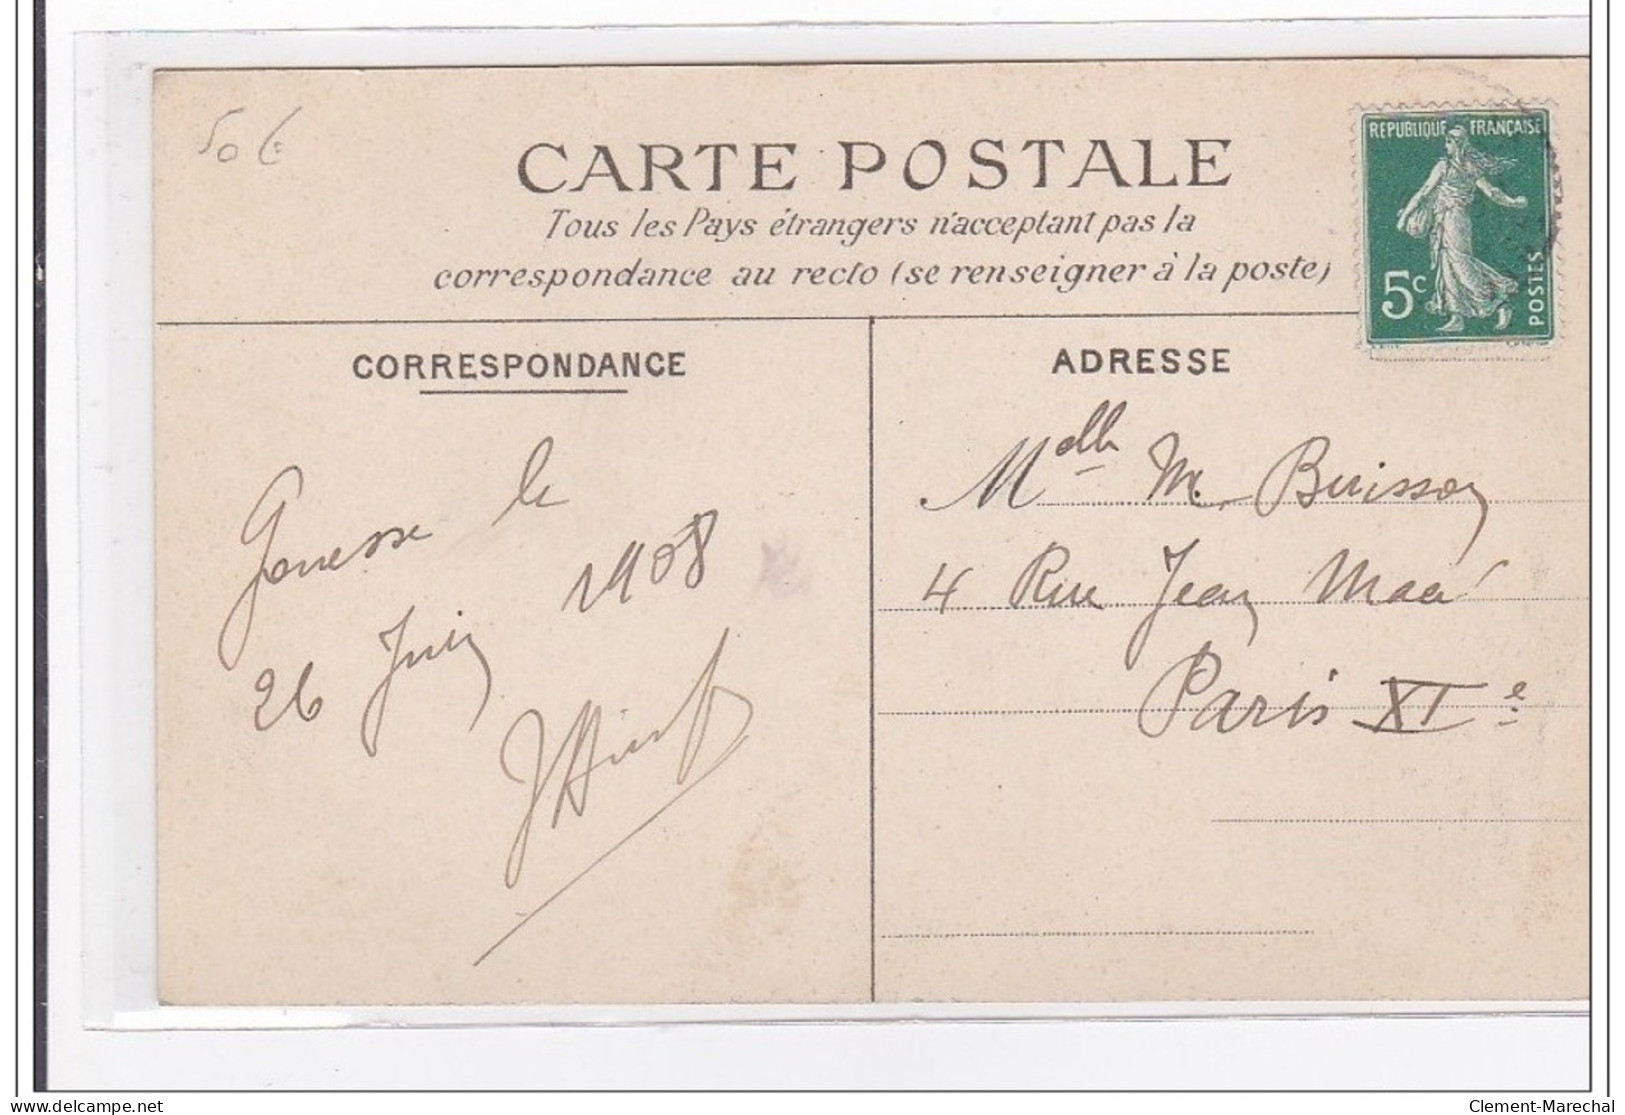 50 €
CARTE POSTALE
Tous les Pays étrangers n'acceptant pas la
correspondance au recto (se renseigner à la poste)
REPUBLIQUE FRANÇAISE
5c
POSTES
CORRESPONDANCE
Gonesse le
26 Juin 1908
ADRESSE
Melle M. Buisson
4 Rue Jean Macé
Paris XIe
delcampe.net
Clement-Marechal